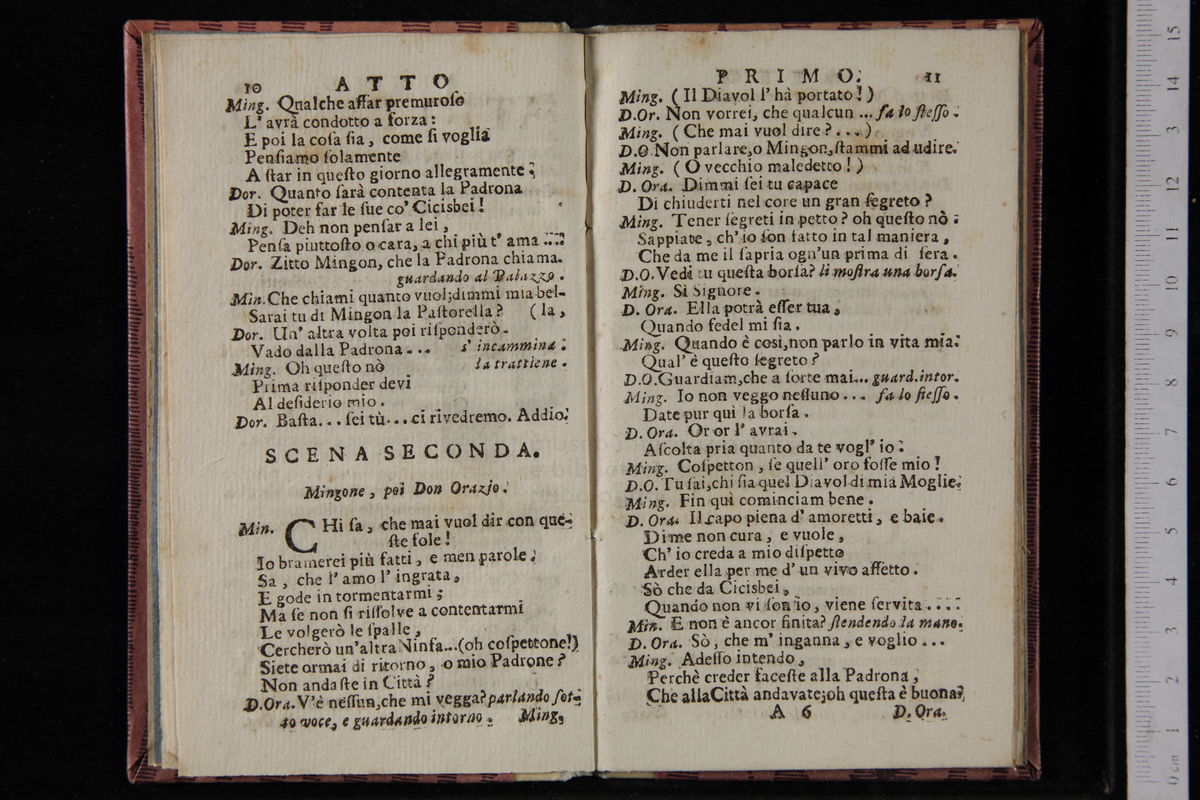 10 ATTO
Ming. Qualche affar premuroſo
L' avrà condotto a forza:
E poi la coſa ſia, come ſi voglia
Penſiamo ſolamente
A ſtar in queſto giorno allegramente.
Dor. Quanto ſarà contenta la Padrona
Di poter far le ſue co' Cicisbei!
Ming. Deh non penſar a lei,
Penſa piuttoſto o cara, a chi più t' ama ....
Dor. Zitto Mingon, che la Padrona chiama.
guardando al Palazzo.
Min. Che chiami quanto vuol; dimmi mia bel-
Sarai tu di Mingon la Paſtorella? (la,
Dor. Un' altra volta poi riſponderò.
Vado dalla Padrona... s' incammina.
Ming. Oh queſto nò la trattiene.
Prima riſponder devi
Al deſiderio mio.
Dor. Baſta... ſei tù... ci rivedremo. Addio.
SCENA SECONDA.
Mingone, poi Don Orazio.
Min. CHi ſa, che mai vuol dir con que-
ſte fole!
Io bramerei più fatti, e men parole.
Sa, che l' amo l' ingrata,
E gode in tormentarmi;
Ma ſe non ſi riſſolve a contentarmi
Le volgerò le ſpalle,
Cercherò un' altra Ninfa...(oh coſpettone!)
Siete ormai di ritorno, o mio Padrone?
Non andaſte in Città?
D.Ora. V'è neſſun, che mi vegga? parlando ſot-
to voce, e guardando intorno. Ming.
PRIMO. 11
Ming. (Il Diavol l' hà portato!)
D.Or. Non vorrei, che qualcun ... fa lo ſteſſo.
Ming. (Che mai vuol dire?...)
D.O. Non parlare, o Mingon, ſtammi ad udire.
Ming. (O vecchio maledetto!)
D. Ora. Dimmi ſei tu capace
Di chiuderti nel core un gran ſegreto?
Ming. Tener ſegreti in petto? oh queſto nò:
Sappiate, ch' io ſon fatto in tal maniera,
Che da me il ſapria ogn'un prima di ſera.
D.O. Vedi tu queſta borſa? li moſtra una borſa.
Ming. Si Signore.
D. Ora. Ella potrà eſſer tua,
Quando fedel mi ſia.
Ming. Quando è così, non parlo in vita mia.
Qual' è queſto ſegreto?
D.O. Guardiam, che a ſorte mai... guard. intor.
Ming. Io non veggo neſſuno... fa lo ſteſſo.
Date pur qui la borſa.
D. Ora. Or or l' avrai.
Aſcolta pria quanto da te vogl' io.
Ming. Coſpetton, ſe quell' oro foſſe mio!
D.O. Tu ſai, chi ſia quel Diavol di mia Moglie.
Ming. Fin quì cominciam bene.
D. Ora. Il capo piena d' amoretti, e baie.
Di me non cura, e vuole,
Ch' io creda a mio diſpetto
Arder ella per me d' un vivo affetto.
Sò che da Cicisbei,
Quando non vi ſon io, viene ſervita....
Min. E non è ancor finita? ſtendendo la mano.
D. Ora. Sò, che m' inganna, e voglio...
Ming. Adeſſo intendo,
Perchè creder faceſte alla Padrona,
Che alla Città andavate; oh queſta è buona?
A 6 D. Ora.
15
14
13
12
11
10
9
8
7
6
5
4
3
2
1
0 cm